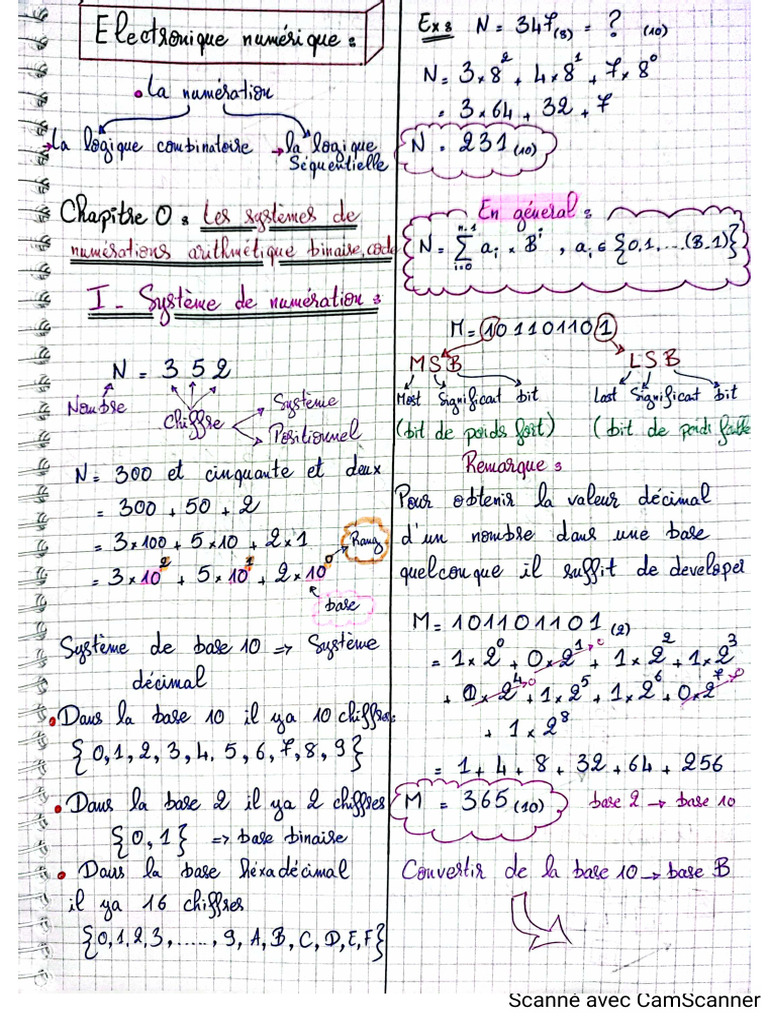 Electronique numérique :
• La numération
→ La logique combinatoire → La logique
Séquentielle
Chapitre 0 : Les systèmes de
numérations arithmétique binaire, code
I - Système de numération :
N = 3 5 2
Nombre
Chiffre
Système
Positionnel
N = 300 et cinquante et deux
= 300 + 50 + 2
= 3 × 100 + 5 × 10 + 2 × 1
Rang
= 3 × 10² + 5 × 10¹ + 2 × 10⁰
base
Système de base 10 => Système
décimal
• Dans la base 10 il ya 10 chiffres
{0, 1, 2, 3, 4, 5, 6, 7, 8, 9}
• Dans la base 2 il ya 2 chiffres
{0, 1} => base binaire
• Dans la base héxadécimal
il ya 16 chiffres
{0, 1, 2, 3, ......, 9, A, B, C, D, E, F}
Ex : N = 347(8) = ? (10)
N = 3 × 8² + 4 × 8¹ + 7 × 8⁰
= 3 × 64 + 32 + 7
N = 231(10)
En géneral :
N = ∑ᵢ₌₀ⁿ⁻¹ aᵢ × Bⁱ , aᵢ ∈ {0, 1, ... (B-1)}
M = 101101101
MSB LSB
Most Significat bit Last Significat bit
(bit de poids fort) (bit de poids faible
Remarque :
Pour obtenir la valeur décimal
d'un nombre dans une base
quelconque il suffit de developer
M = 101101101(2)
= 1 × 2⁰ + 0 × 2¹→0 + 1 × 2² + 1 × 2³
+ 0 × 2⁴→0 + 1 × 2⁵ + 1 × 2⁶ + 0 × 2⁷→0
+ 1 × 2⁸
= 1 + 4 + 8 + 32 + 64 + 256
M = 365(10) base 2 → base 10
Convertir de la base 10 → base B
Scanné avec CamScanner